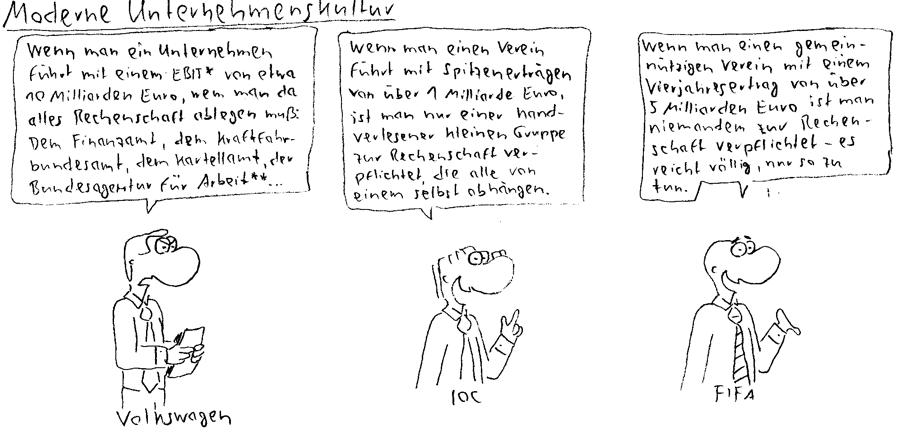 Moderne Unternehmenskultur
Wenn man ein Unternehmen
führt mit einem EBIT* von etwa
10 Milliarden Euro, wem man da
alles Rechenschaft ablegen muß:
Dem Finanzamt, dem Kraftfahr-
bundesamt, dem Kartellamt, der
Bundesagentur für Arbeit**...
Wenn man einen Verein
führt mit Spitzenerträgen
von über 1 Milliarde Euro,
ist man nur einer hand-
verlesener kleinen Gruppe
zur Rechenschaft ver-
pflichtet, die alle von
einem selbst abhängen.
Wenn man einen gemein-
nützigen Verein mit einem
Vierjahresertrag von über
5 Milliarden Euro ist man
niemanden zur Rechen-
schaft verpflichtet - es
reicht völlig, nur so zu
tun.
Volkswagen
IOC
FIFA